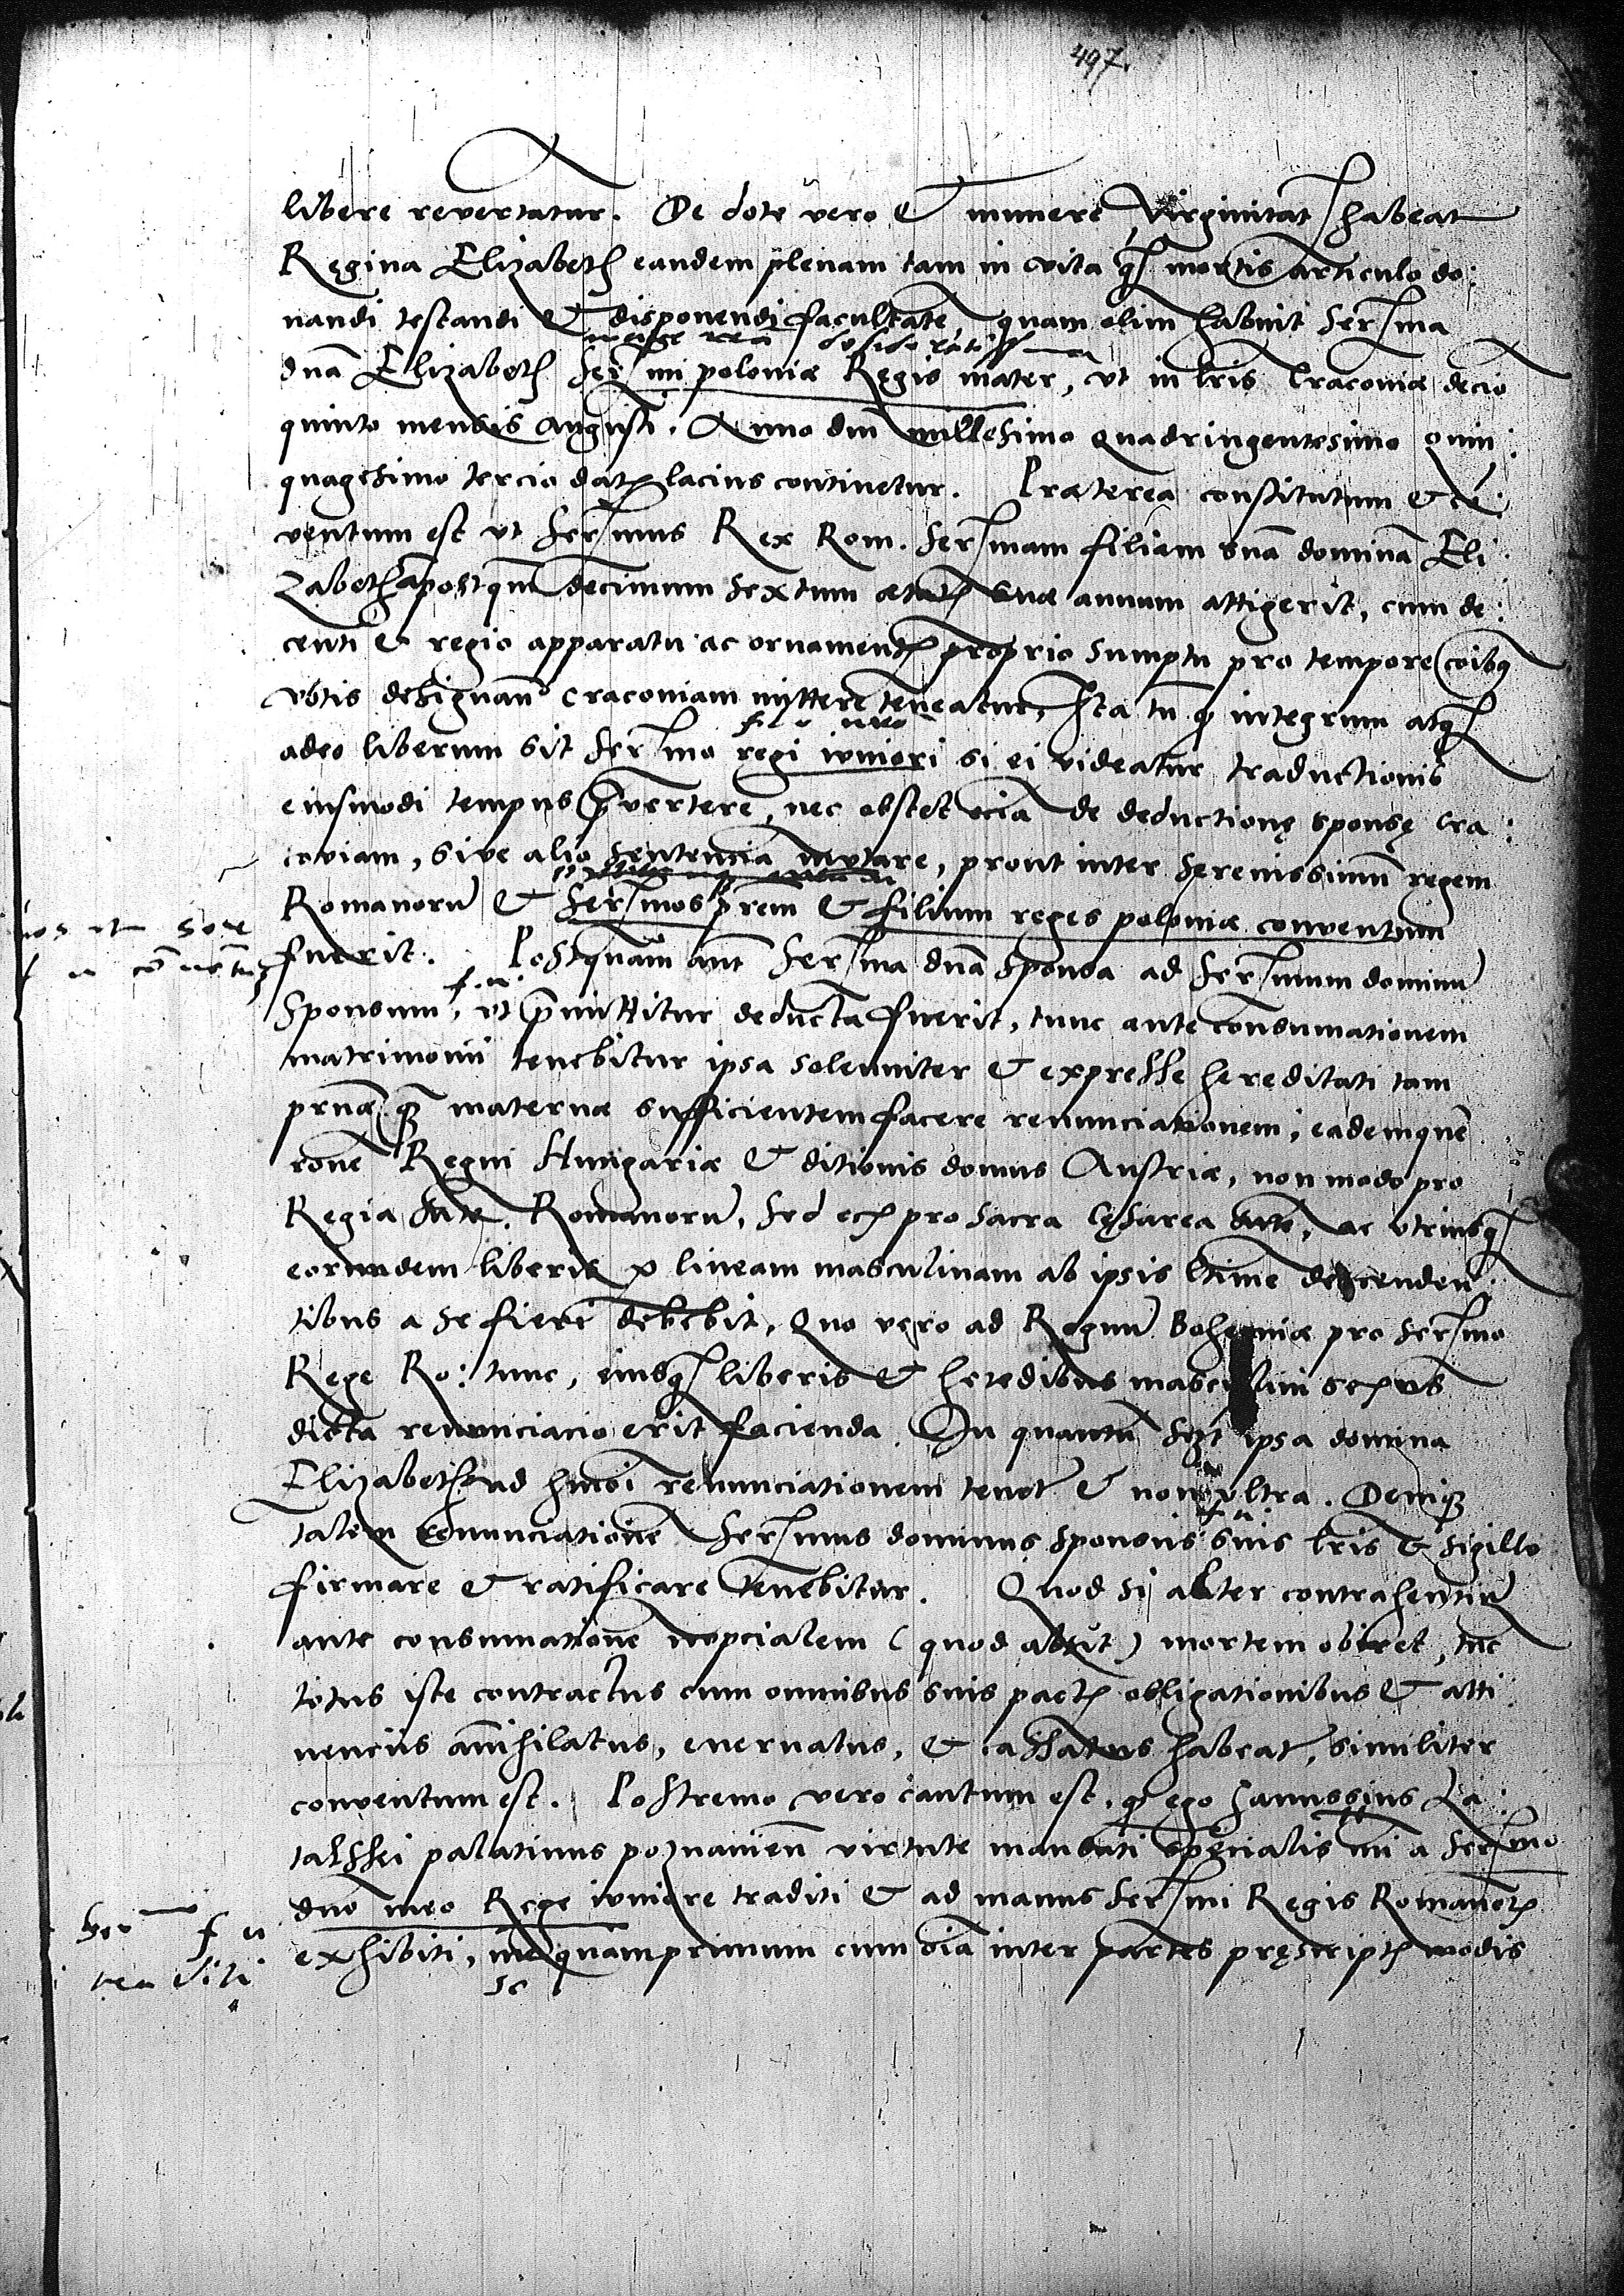 497.
libere revertatur. De dote vero & munere Virginitat habeat
Regina Elizabeth eandem plenam tam in vita q mortis articulo do:
nandi testandi & disponendi facultate, quam olim habuit Serma
dna Elizabeth Sermi poloniæ Regis mater, vt in lris Cracoviæ decio
quinto mensis Augusti. Anno dni millesimo quadringentesimo quin:
quagesimo tercio dat lacius continetur. Præterea constitutum & cō:
ventum est vt Sermus Rex Rom. Sermam filiam suā dominā Eli
zabethā postqm decimum sextum ætat suæ annum attigerit, cum de:
centi & regio apparatu ac ornament proprio sumptu pro tempore coibq
votis designand Cracoviam mittere teneatur, Ita tn q integrum atq
adeo liberum sit Sermo regi iuniori si ei videatur traductionis
eiusmodi tempus pvertere, nec obstet ecia de deductionę sponsę Cra:
coviam, sive alio sententia mutare, prout inter Serenissimū regem
Romanorū & Sermos prem & filium reges poloniæ conventum
fuerit. Postquam aut Serma dna Sponsa ad Sermum dominū
Sponsum, vt pmittitur deducta fuerit, tunc ante consumationem
matrimonii tenebitur ipsa solenniter & expresse hereditati tam
prnæ q maternæ sufficientem facere renunciationem, eademque
rone Regni Hungariæ & ditionis domus Austriæ, non modo pro
Regia Mte. Romanorū, sed ec pro Sacra Cęsarea Mte, ac vtriusq
eorumdem liberis p lineam masculinam ab ipsis ltime descenden:
tibus a se fieri debebit, Quo vero ad Regnū Bohemiæ pro Sermo
Rege Ro: tunc, eiusq liberis & heredibus masculini sexus
dicta renunciacio erit facienda. In quantū ipsa domina
Elizabeth ad hmōi renunciationem tenet & non vltra. Deniq
talem renunciationē Sermus dominus sponsus suis lris & sigillo
firmare & ratificare tenebitur. Quod si alter contrahentiū
ante consumationē nupcialem (quod absit) mortem obiret, tūc
totus iste contractus cum omnibus suis pact obligationibus & atti
nenciis annihilatus, enervatus, & cassatus habeat, similiter
conventum est. Postremo vero cautum est, q ego Janussius La:
talski palatinus poznanien virtute mandati spēcialis mi a Sermo
dno meo Rege iuniore traditi & ad manus Sermi Regis Romanor
exhibiti, me quamprimum cum oīa inter partes pręscript modis